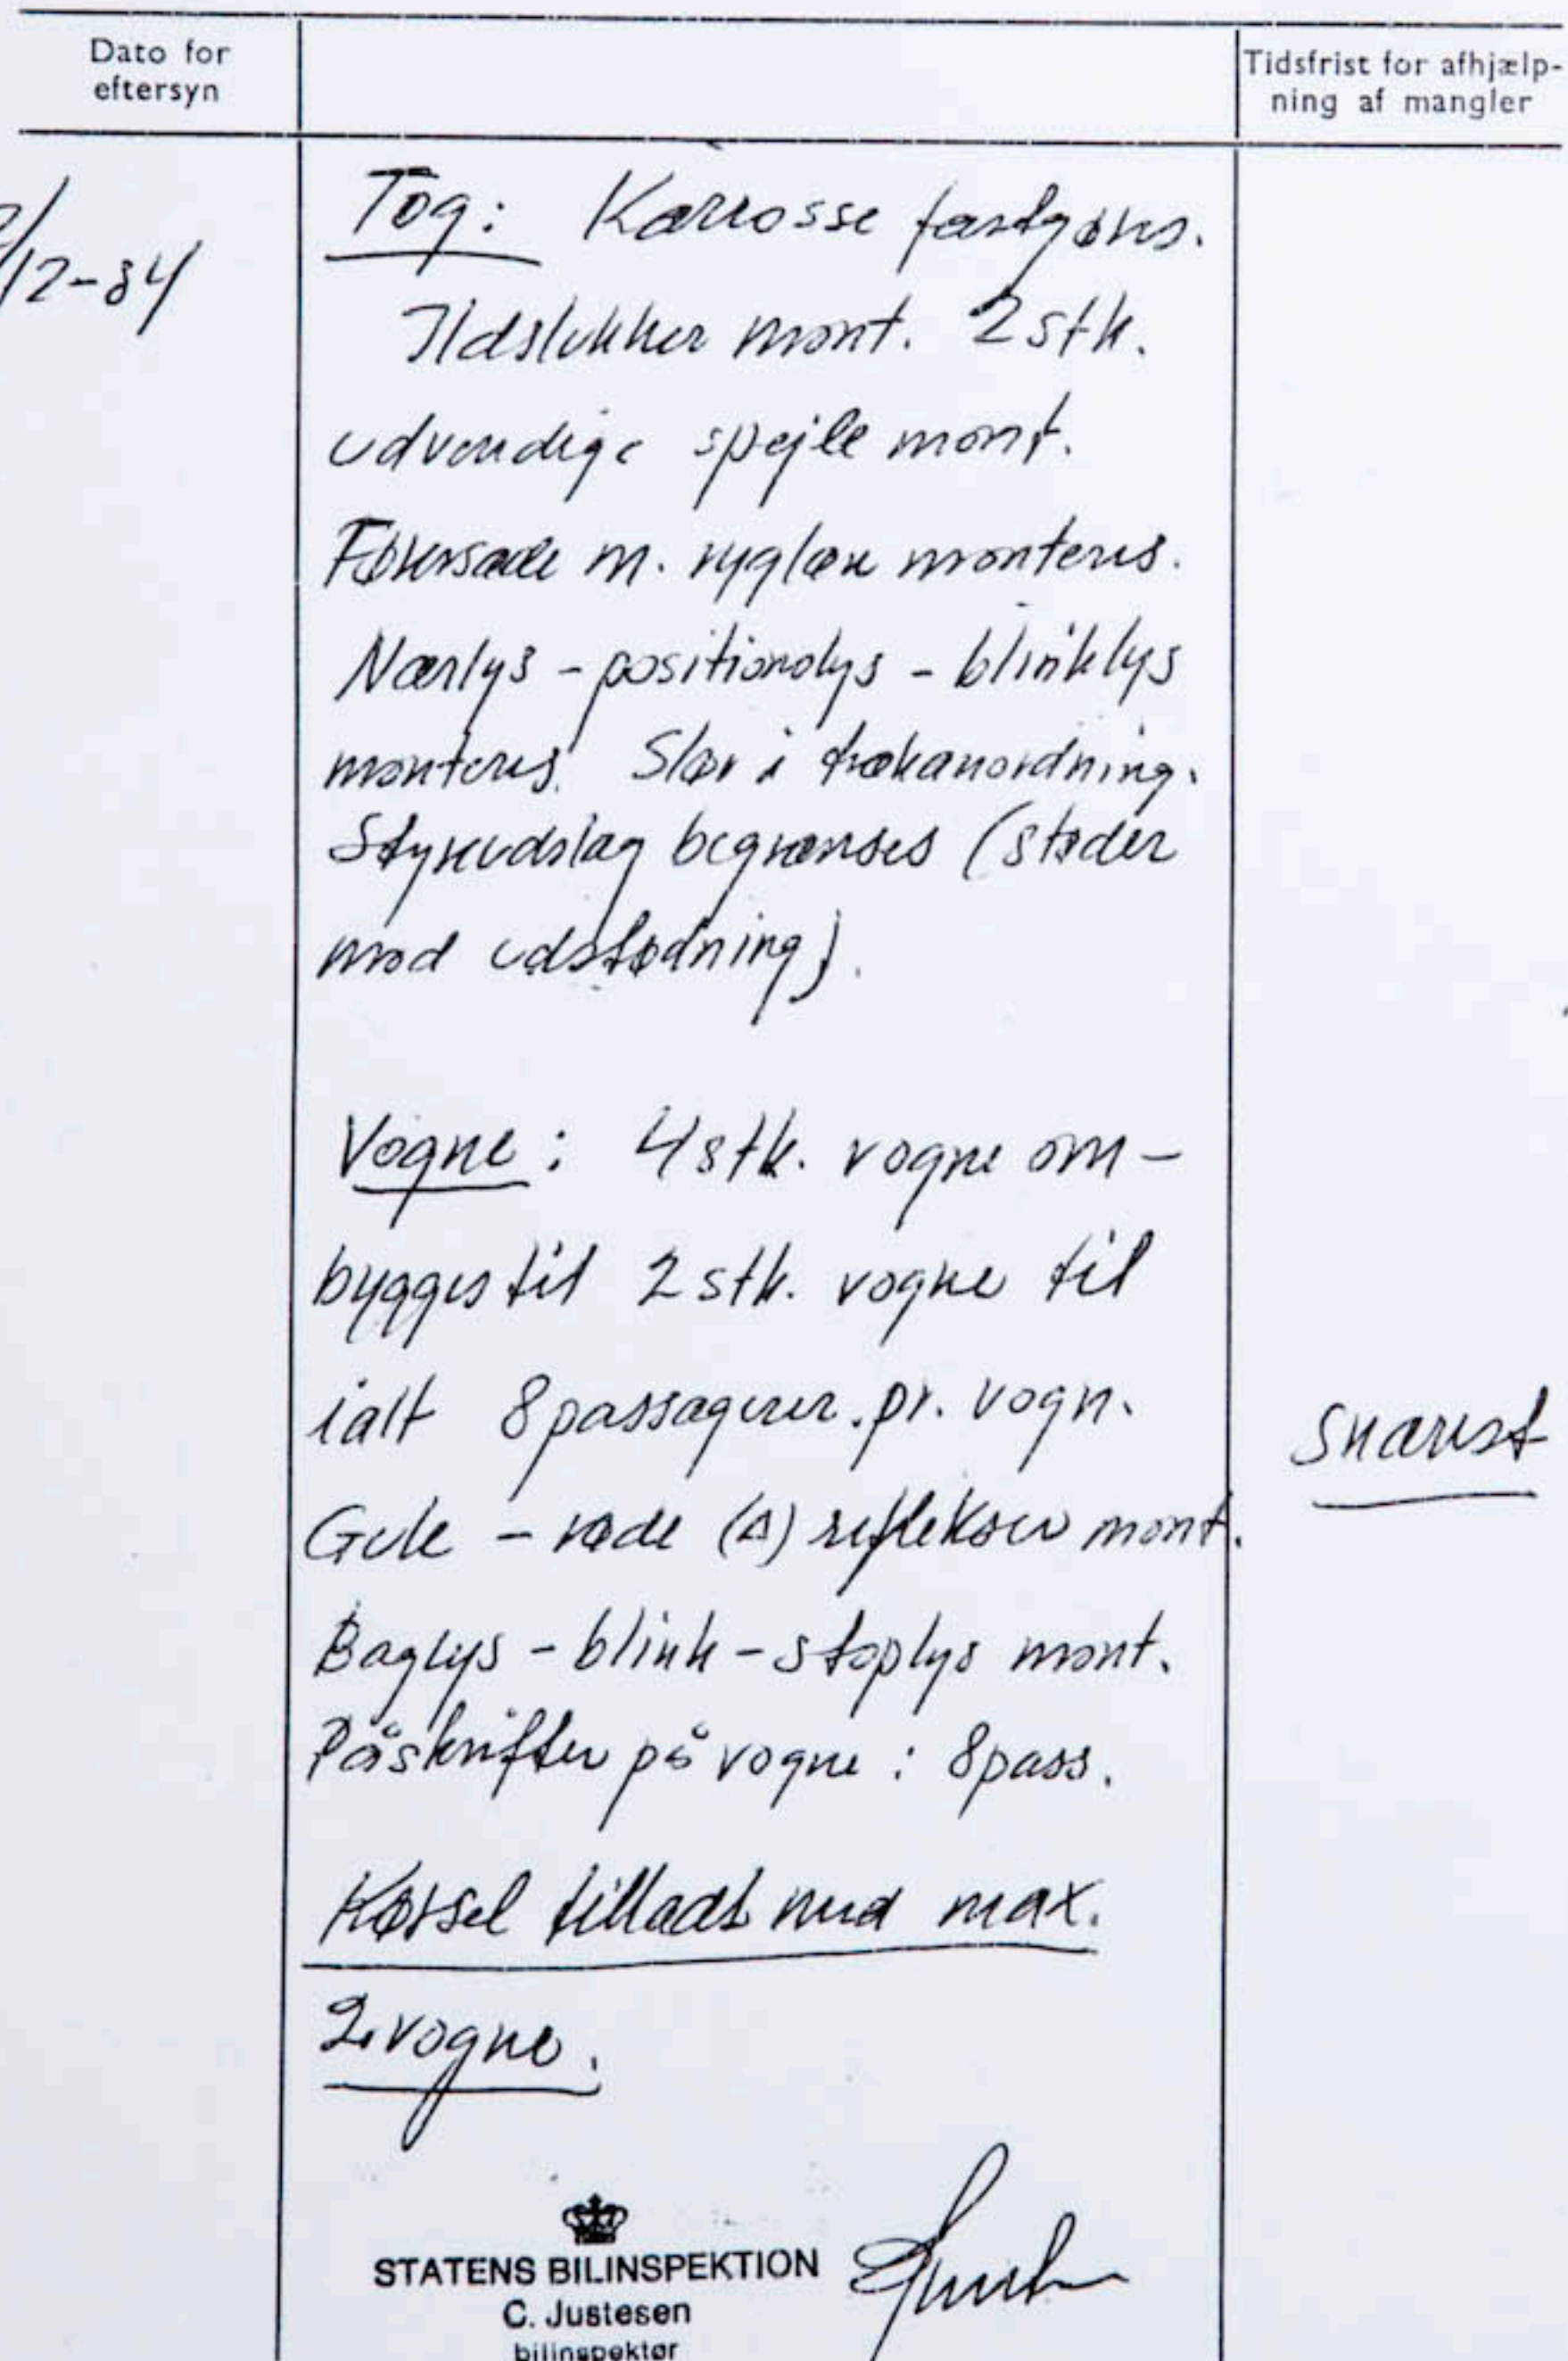 Dato for
eftersyn
Tidsfrist for afhjælp-
ning af mangler
/12-84
Tog: Karrosse fastgøres.
Ildslukker mont. 2 stk.
udvendige spejle mont.
Førersæde m. ryglæn monteres.
Nærlys - positionslys - blinklys
monteres. Slør i trækanordning.
Styreudslag begrænses (støder
mod udstødning).
Vogne: 4 stk. vogne om-
bygges til 2 stk. vogne til
ialt 8 passagerer. pr. vogn.
snarest
Gule - røde (△) reflekser mont.
Baglys - blink - stoplys mont.
Påskrifter på vogne: 8 pass.
Kørsel tilladt med max.
2 vogne.
STATENS BILINSPEKTION
C. Justesen
bilinspektør